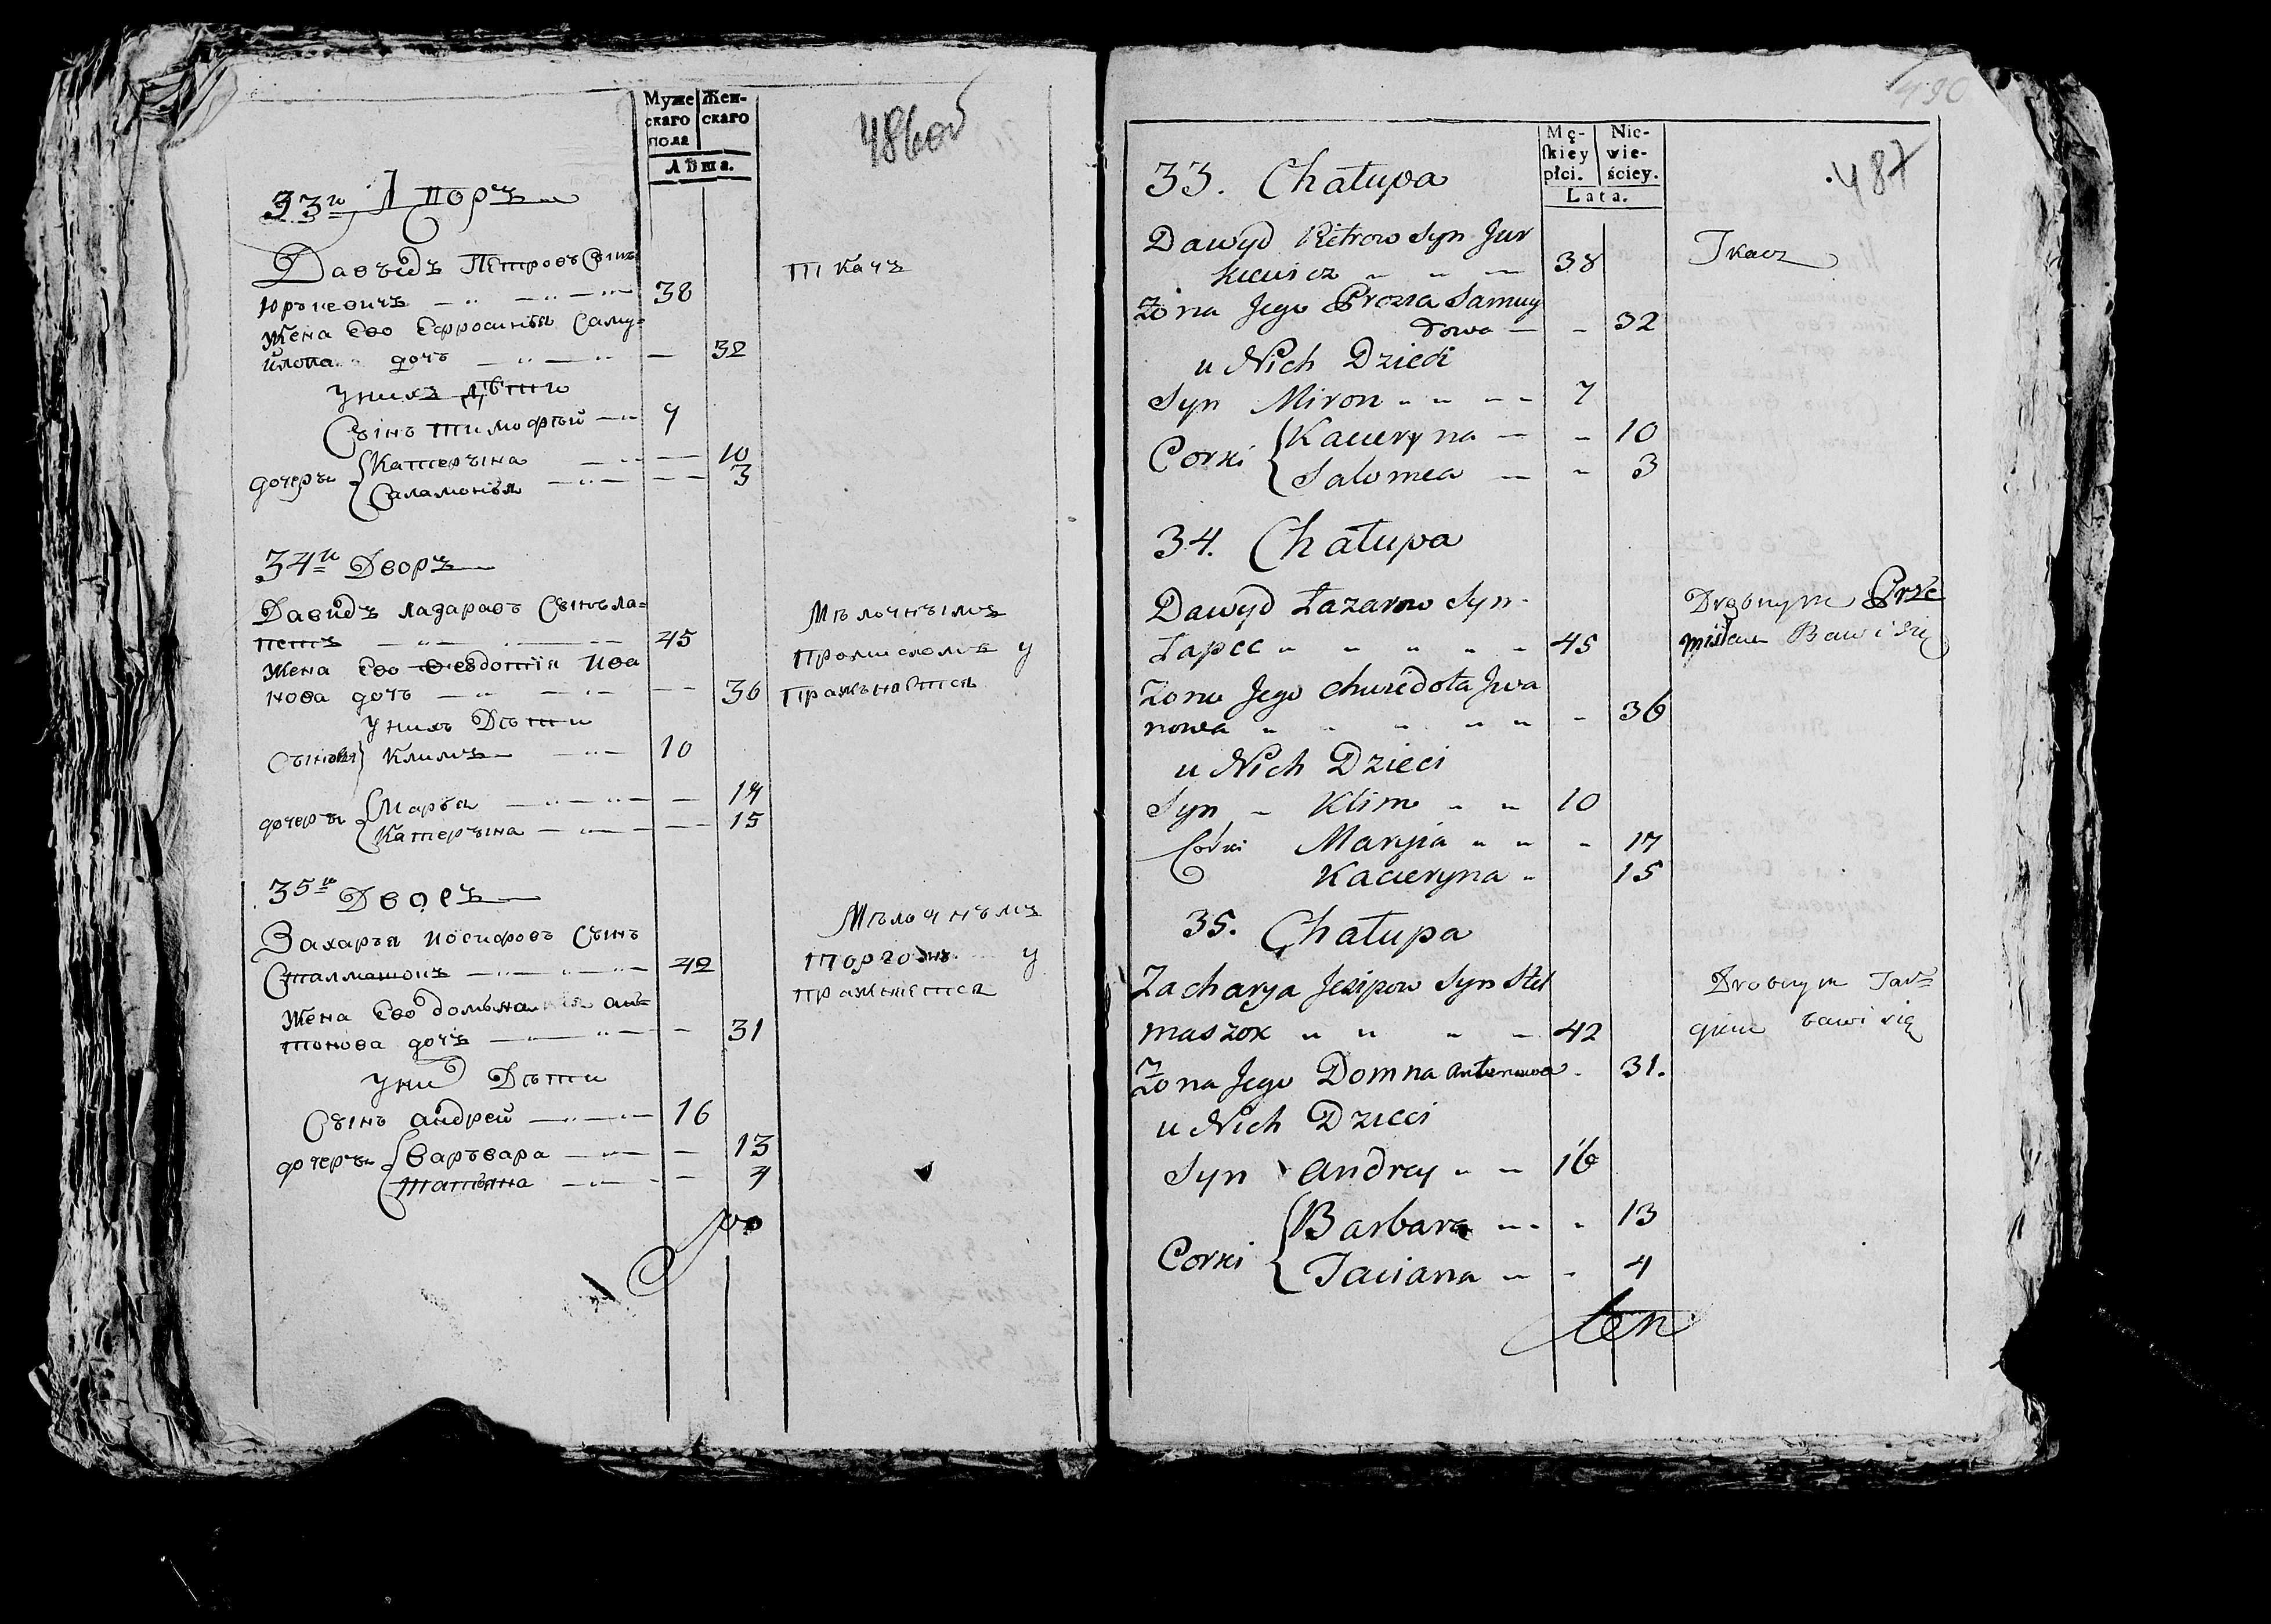 Муже
скаго
пола
Жен-
скаго
Лѣта.
486об
33й Дворъ
Давыдъ Петровъ Сынъ
Юръкевичъ 38
Ткачъ
Жена Его Ефросинья Саму-
йлова дочъ 32
У нихъ Дѣти
Сынъ Тимофѣй 7
дочеръи Катерына 10
Саламонѣя 3
34й Дворъ
Давидъ Лазаровъ Сынъ Ла-
петъ 45
Мѣлочнымъ
Промысломъ У
Жена Его Феѳдотія Ива
нова дочъ 36
пражънаѣтся
У нихъ Дѣти
Сыновья Климъ 10
дочеръи Маръя 17
Катерына 15
35й Дворъ
Захаръя Иосифовъ Сынъ
Сталмашокъ 42
Мѣлочнымъ
торгомъ У
пражнѣтся
Жена Его Домъна ан-
тонова дочъ 31
У ни Дѣти
Сынъ андрей 16
дочеръи Варъвара 13
Татьяна 4
490
487
Mę-
skiey
płci.
Nie-
wie-
ściey.
Lata.
33. Chałupa
Dawyd Pietrow Syn Jur
kiewicz 38
Tkacz
Żona Jego Prozia Samuy
łowa 32
u Nich Dzieci
Syn Miron 7
Corki Kacieryna 10
Salomea 3
34. Chałupa
Dawyd Łazarow Syn
Łapec 45
Drobnym Prze
mislem Bawi się
Żona Jego Chwiedota Iwa
nowa 36
u Nich Dzieci
Syn Klim 10
Córki Maryia 17
Kacieryna 15
35. Chałupa
Zacharya Jezipow Syn Stel
maszok 42
Drobnym Tar-
giem bawi się
Żona Jego Domna Antonowa 31.
u Nich Dzieci
Syn Andrey 16
Corki Barbara 13
Taciana 4